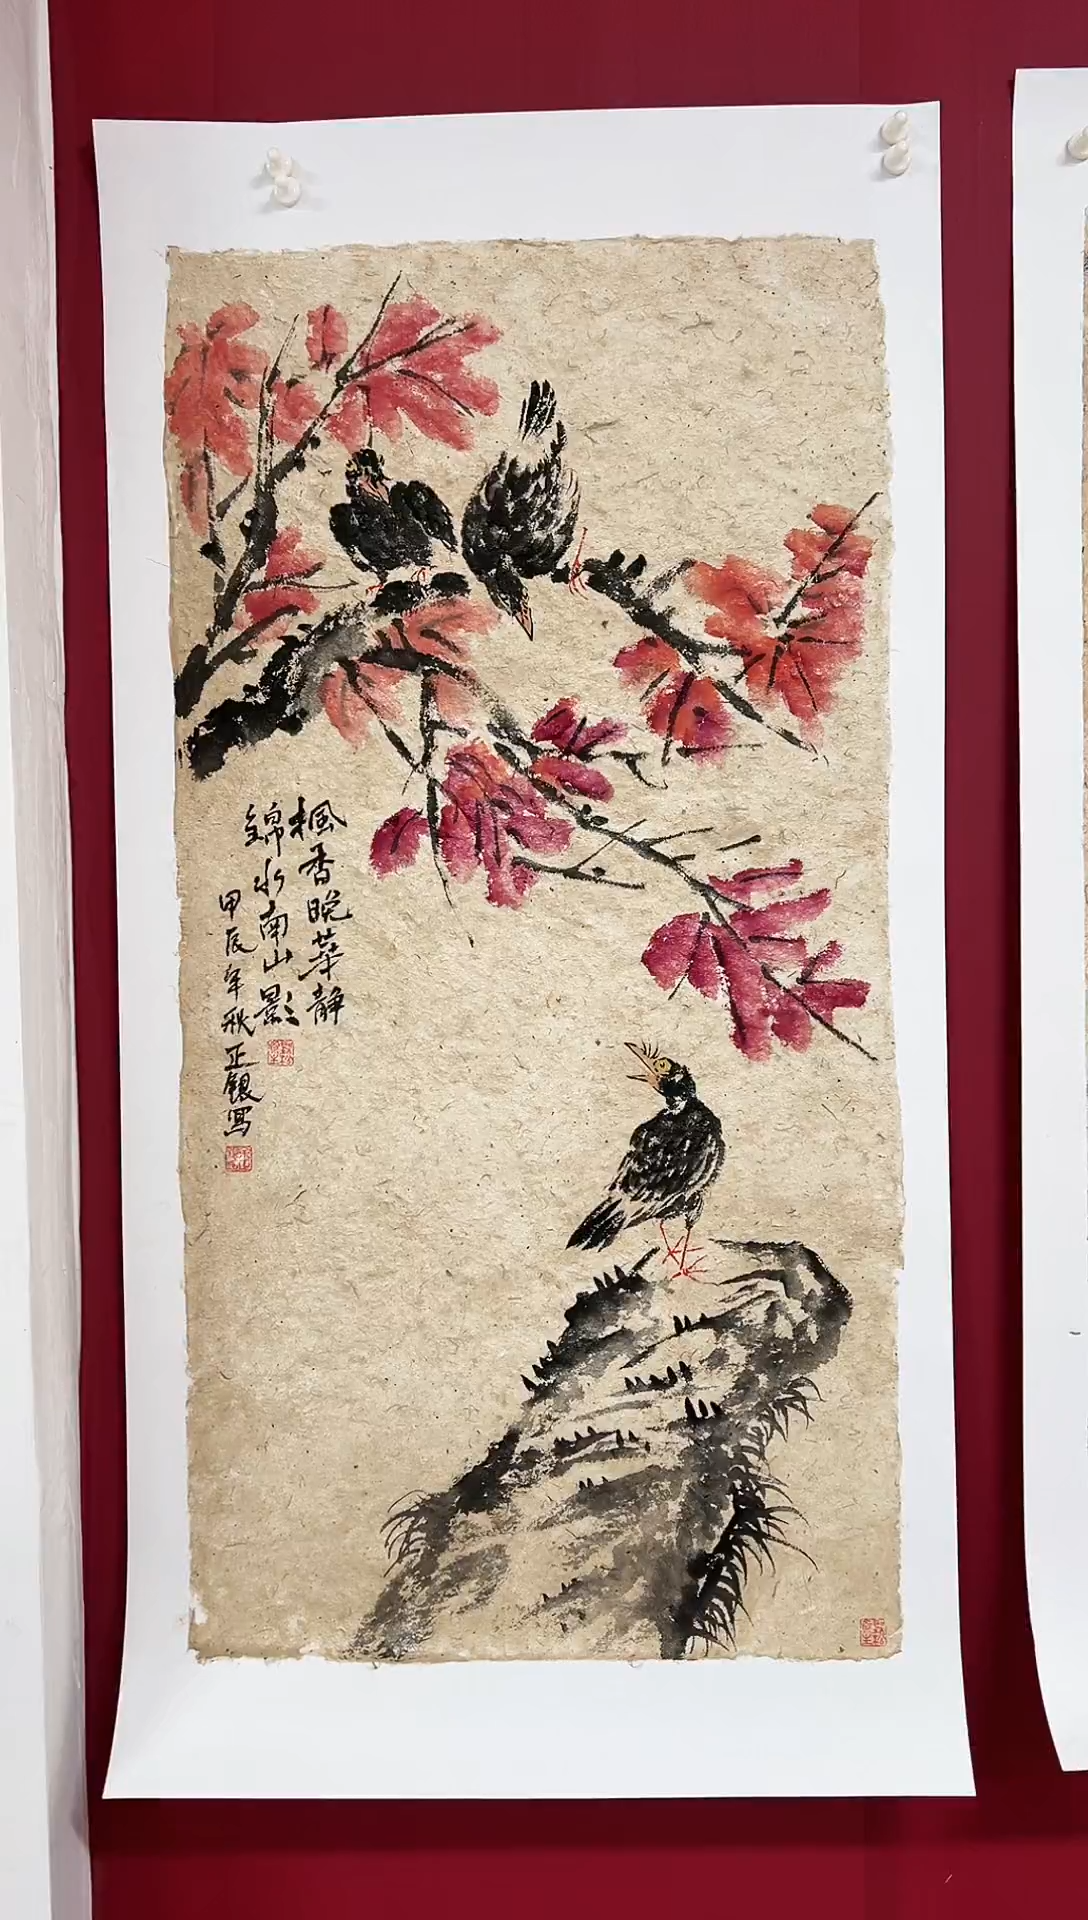 楓香晚華靜
錦水南山影
甲辰年秋正銀寫